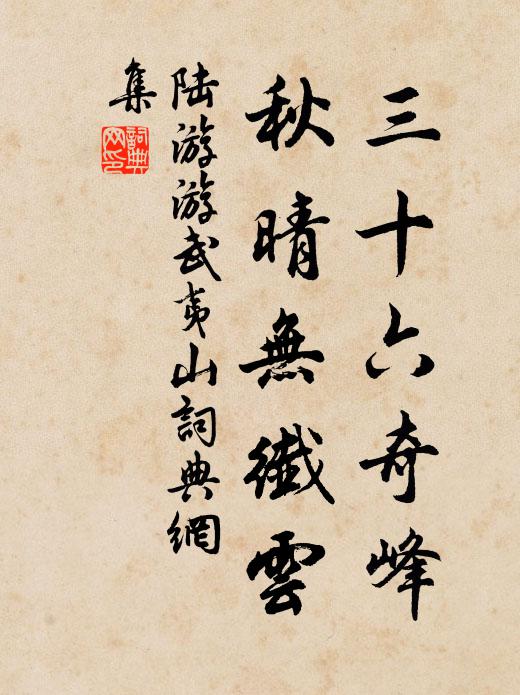 三十六奇峰
秋晴無纖雲
陆游游武夷山詞典網
集
詞典
网印